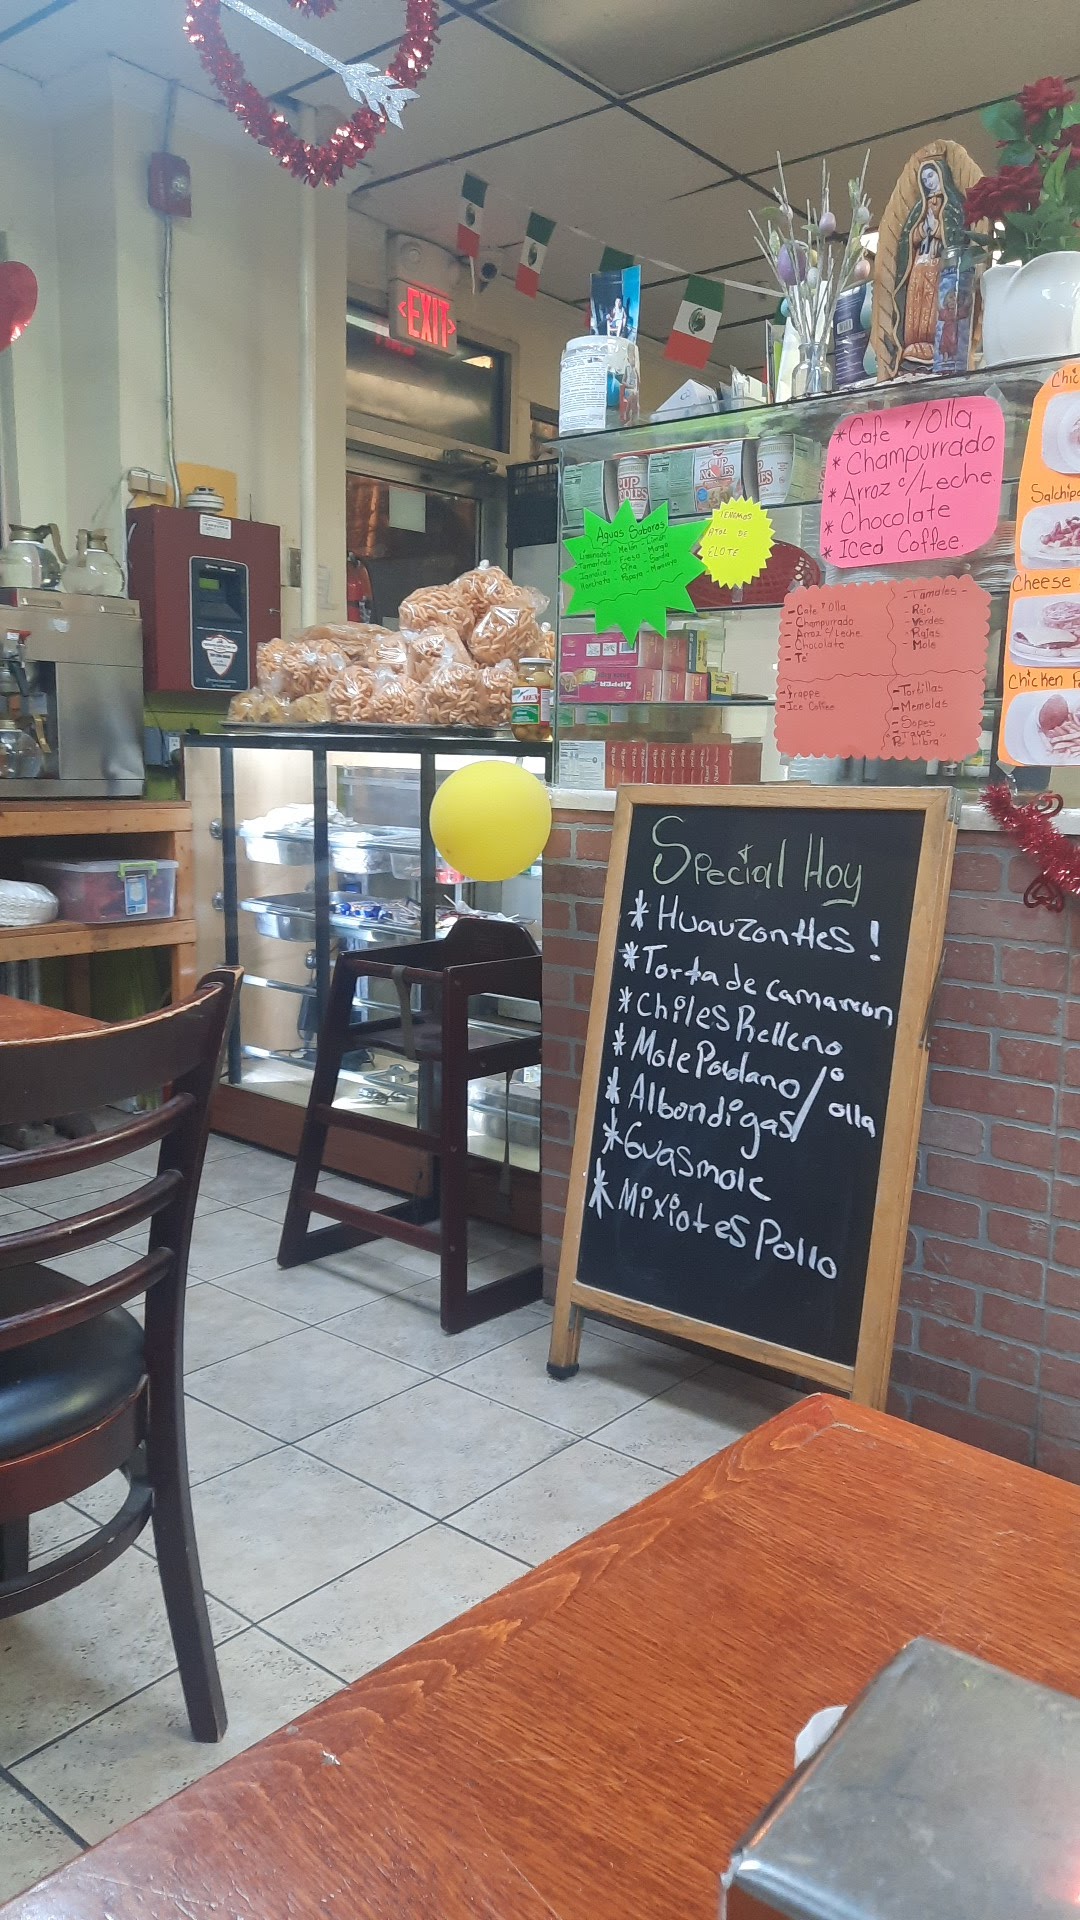 EXIT
CUP
NOODLES
CUP
NOODLES
Aguas Sabores
Melon
Limon
Tamarindo
Fresa
Mango
Jamaica
Piña
Horchata
Papaya
TENEMOS
ATOL DE
ELOTE
*Cafe °/Olla
*Champurrado
*Arroz c/Leche.
*Chocolate
*Iced Coffee.
- Cafe °Olla
- Champurrado
- Arroz c/Leche
- Chocolate
- Te
- Tamales -
- Rojo
- Verdes
- Rajas
- Mole
- Frappe
- Ice Coffee
- Tortillas
- Memelas
- Sopes
- Tacos
"Pr Libra"
Chic
Salchipa
Cheese
Chicken P
ZIPPER
Special Hoy
*Huauzontles!
*Torta de camarron
*Chiles Relleno
*Mole Poblano/°olla
*Albondigas
*Guasmole
*Mixiotes Pollo